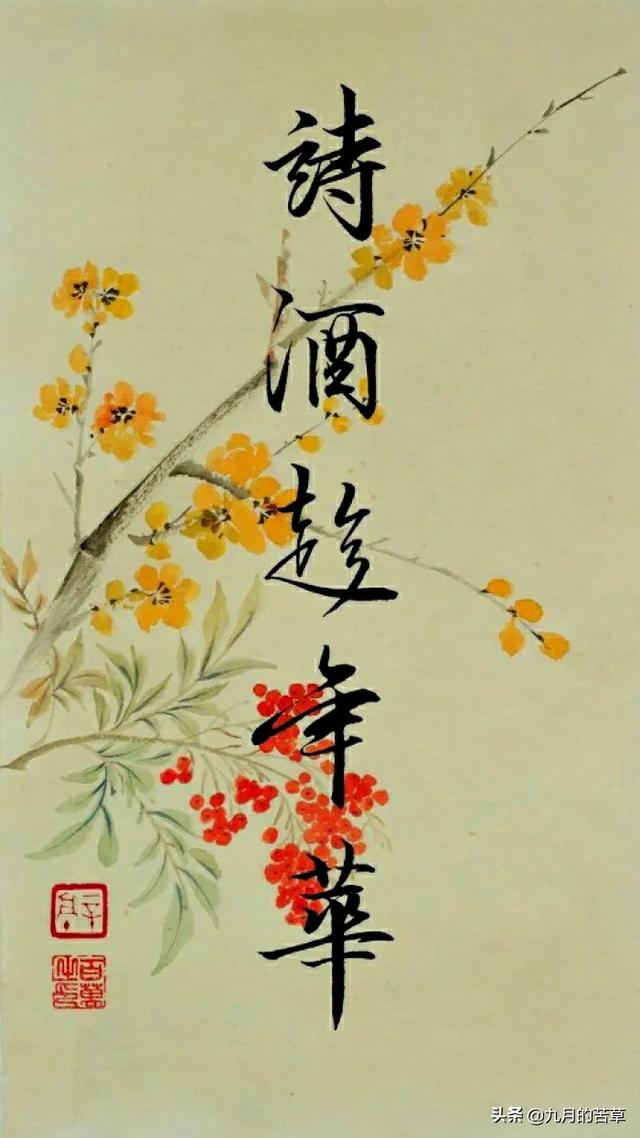 詩酒趁年華
头条 @九月的苦草